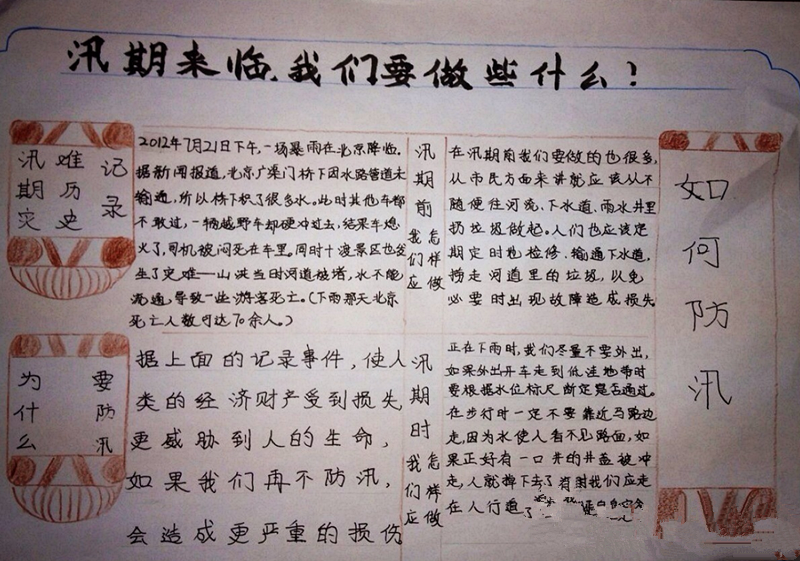 汛期来临,我们要做些什么!
汛期灾
难历史
记录
2012年7月21日下午,一场暴雨在北京降临.
据新闻报道,北京广渠门桥下因水路管道未
输通,所以桥下积了很多水。此时其他车都
不敢过,一辆越野车却硬冲过去,结果车熄
火了,司机被闷死在车里。同时十渡景区也发
生了灾难——山洪当时河道被堵,水不能
流通,导致一些游客死亡。(下雨那天北京
死亡人数可达70余人。)
为什么
要防汛
据上面的记录事件,使人
类的经济财产受到损失,
更威胁到人的生命,
如果我们再不防汛,
会造成更严重的损伤
汛期前
我们应
怎样做
在汛期前我们要做的也很多,
从市民方面来讲就应该从不
随便往河流、下水道、雨水井里
扔垃圾做起。人们也应该定
期定时地检修、输通下水道,
捞走河道里的垃圾,以免
必要时出现故障造成损失
汛期时
我们应
怎样做
正在下雨时,我们尽量不要外出,
如果外出开车走到低洼地带时
要根据水位标尺断定是否通过。
在步行时一定不要靠近马路边
走,因为水使人看不见路面,如
果正好有一口井的井盖被冲
走,人就掉下去了
我们应走
在人行道
如何防汛